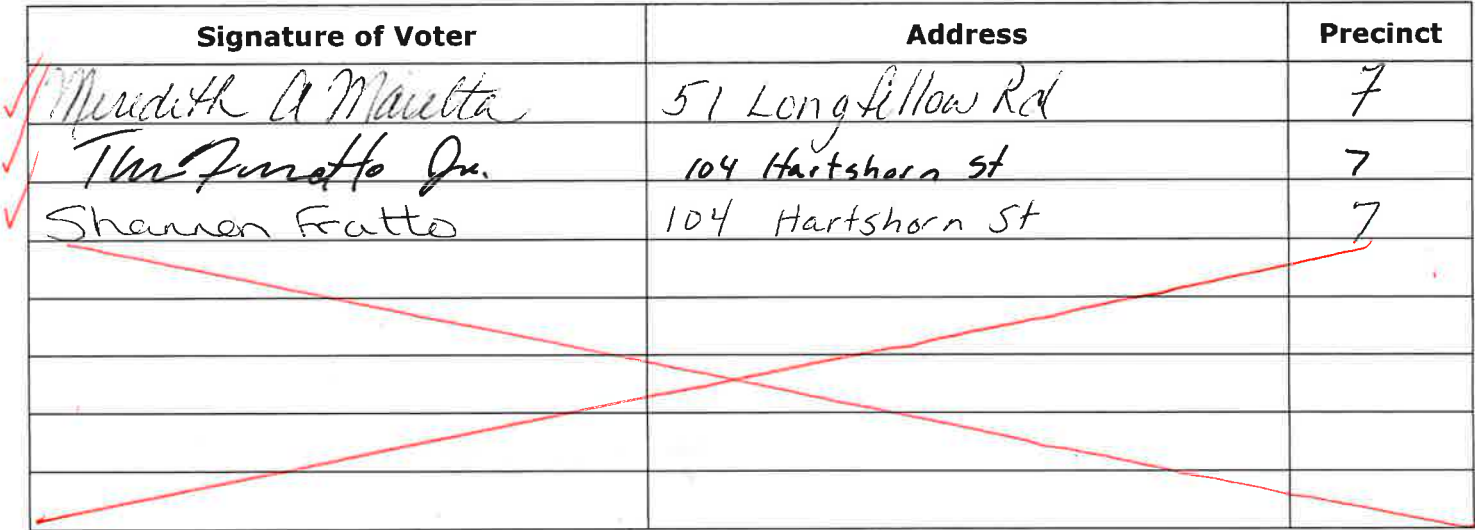 Signature of Voter Address Precinct
Meredith A 51 Longfellow Rd 7
Jr. 104 Hartshorn St 7
Shannon Fratto 104 Hartshorn St 7